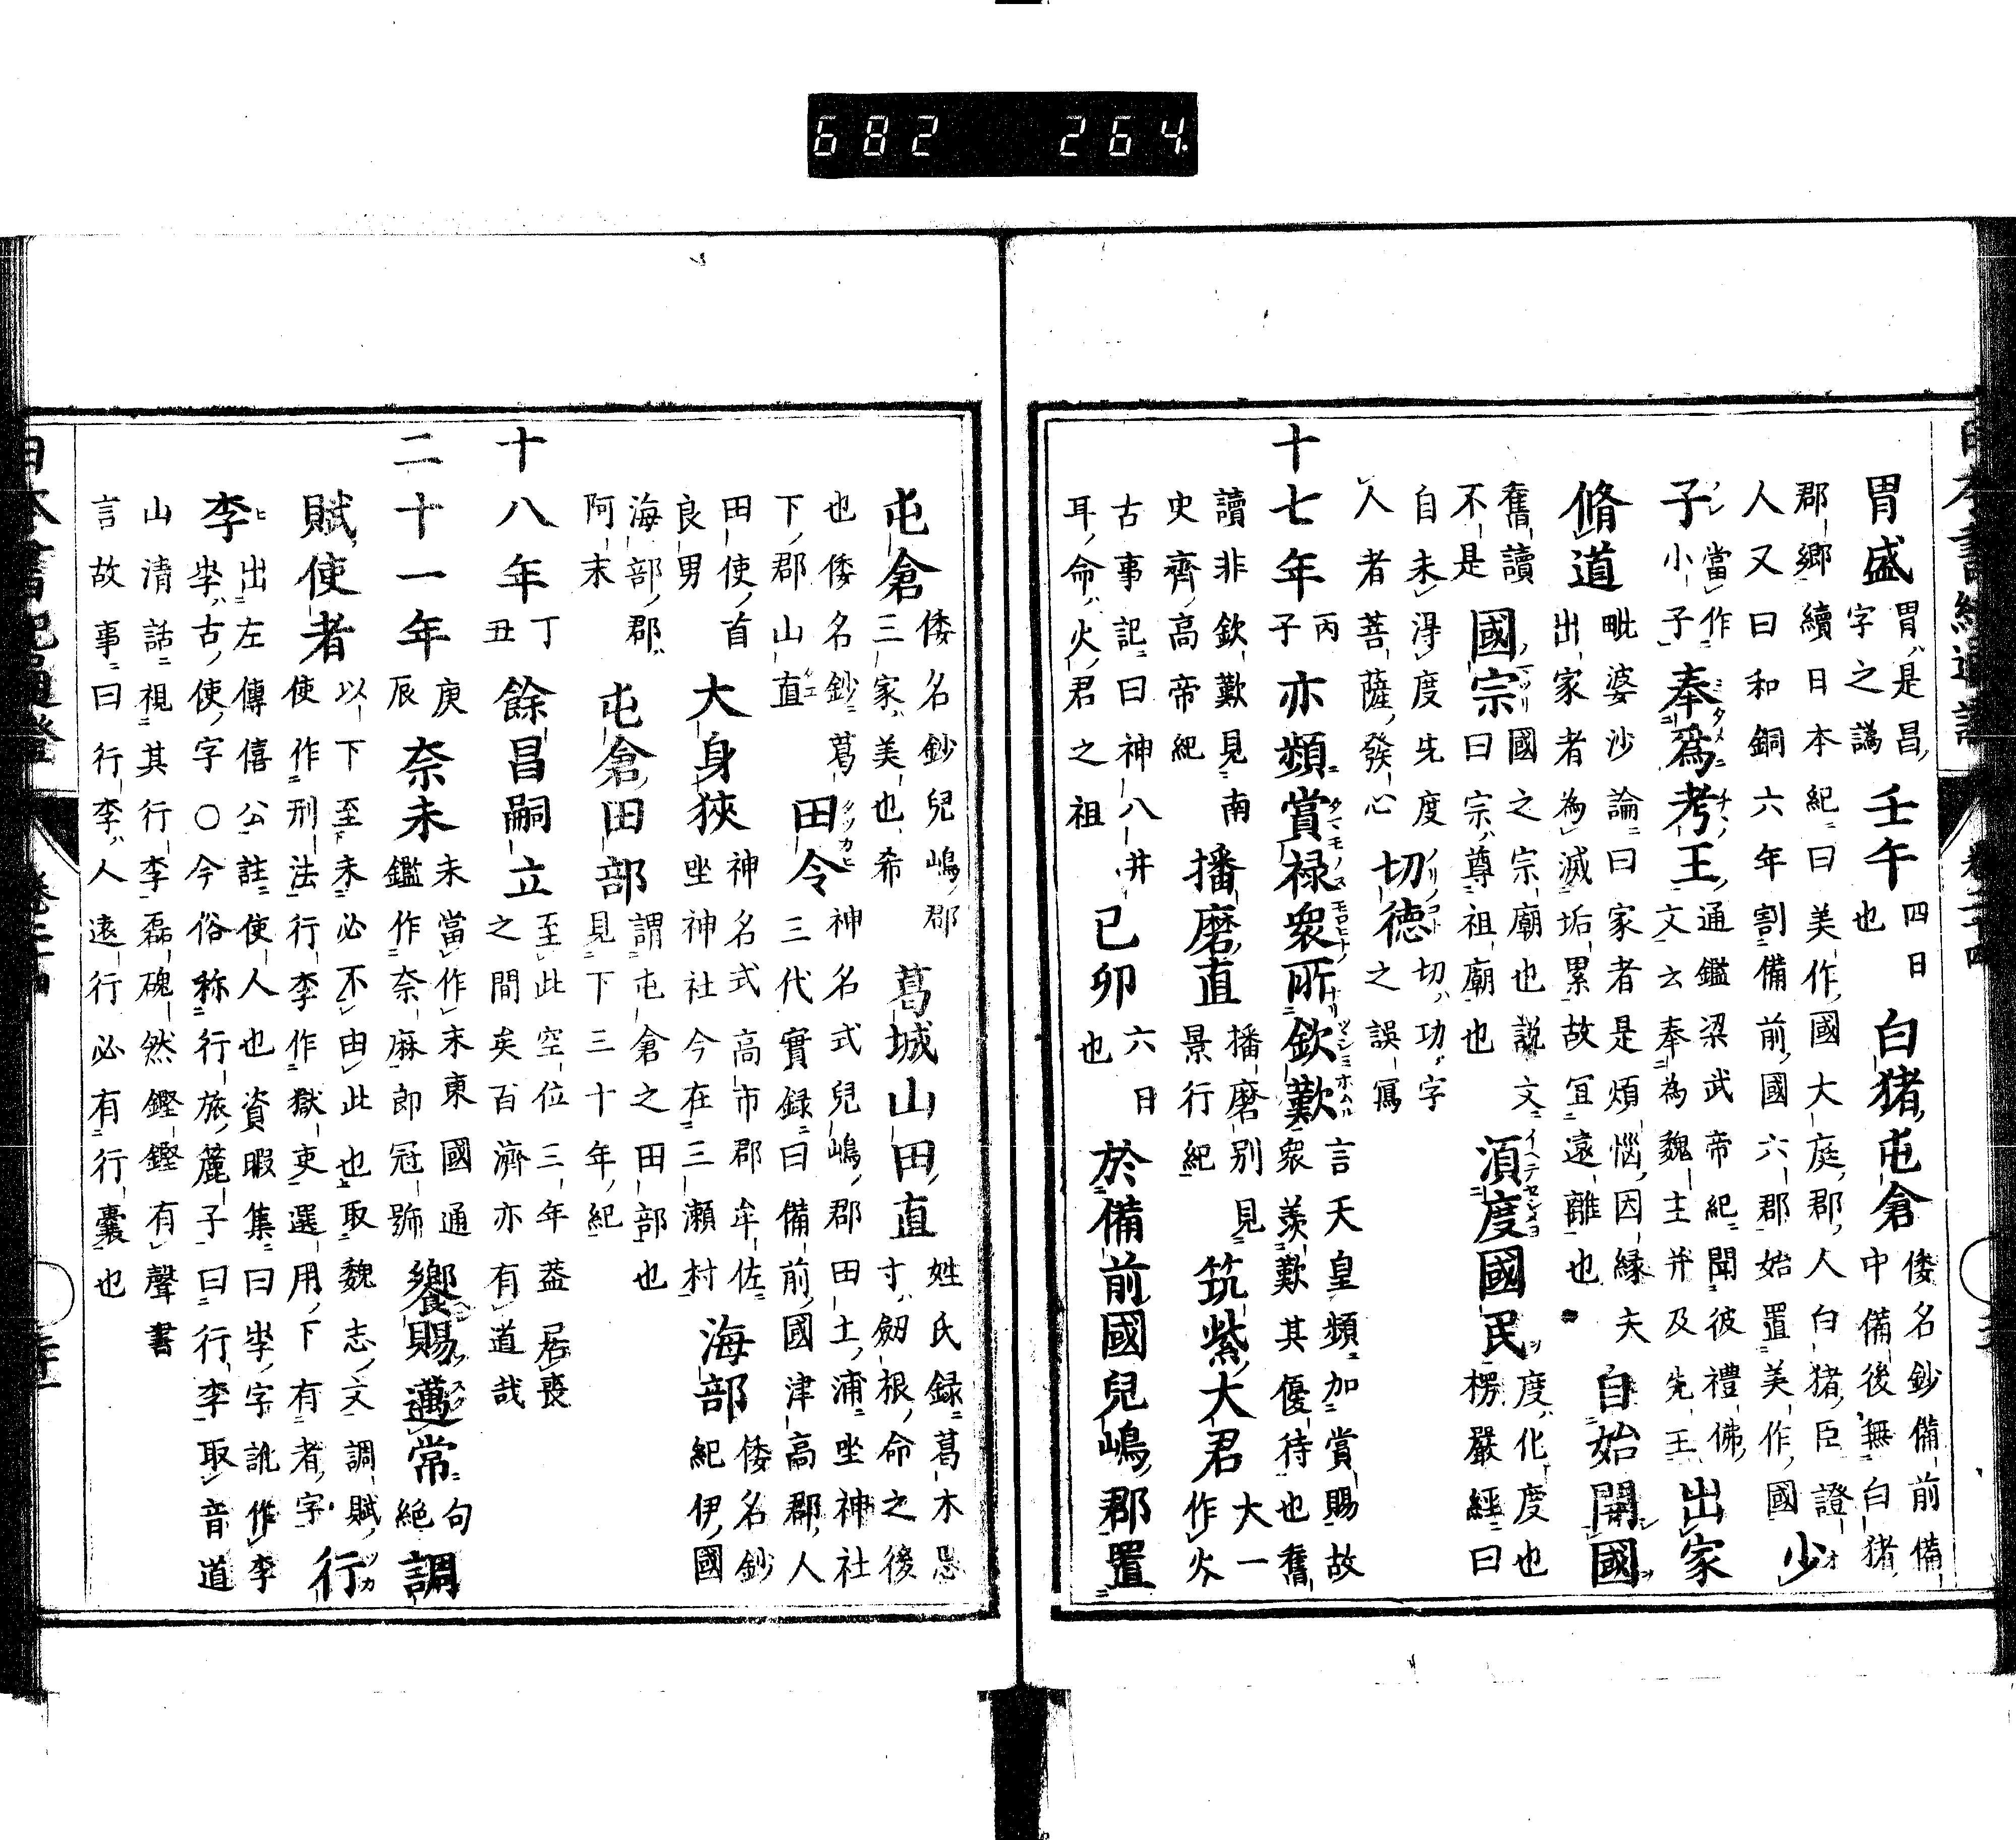 胃盛胃是昌字之譌壬午四日也白猪屯倉倭名鈔備前備中備後無白猪
郡郷續日本紀曰美作國大庭郡人白猪臣證人又曰和銅六年割備前國六郡始置美作國少
子當作小子奉爲考王通鑑梁武帝紀聞彼禮佛文云奉為魏主并及先王出家
脩道毗婆沙論曰家者是煩惱因縁夫出家者為滅垢累故宜遠離也自始開國
舊讀不是國宗國之宗廟也説文曰宗尊祖廟也須度國民度化度也楞嚴經曰
自未得度先度人者菩薩發心切德切功字之誤寫
十七年丙子亦頻賞禄衆所欽歎言天皇頻加賞賜故衆羨歎其優待也舊
讀非欽歎見南史齊高帝紀播磨直播磨別見景行紀筑紫大君大一作火
古事記曰神八井耳命火君之祖已卯六日也於備前國兒嶋郡置
屯倉倭名鈔兒嶋郡三家美也希葛城山田直姓氏録葛木忌寸劔根命之後
也倭名鈔葛下郡山直田令神名式兒嶋郡田土浦坐神社三代實録曰備前國津高郡人
田使首良男大身狹神名式高市郡牟佐坐神社今在三瀬村海部倭名鈔紀伊國
海部郡阿末屯倉田部謂屯倉之田部也見下三十年紀
十八年丁丑餘昌嗣立至此空位三年葢居喪之間矣百濟亦有道哉
二十一年庚辰奈未未當作末東國通鑑作奈麻即冠號饗賜邁常句絶調
賦使者以下至未必不由此也取魏志文調賦使作刑法行李作獄吏選用下有者字行
李出左傳僖公註使人也資暇集曰𡴎字訛作李𡴎古使字○今俗称行旅麓子曰行李取音道
山清話視其行李磊磈然鏗鏗有聲書言故事曰行李人遠行必有行嚢也
682 264